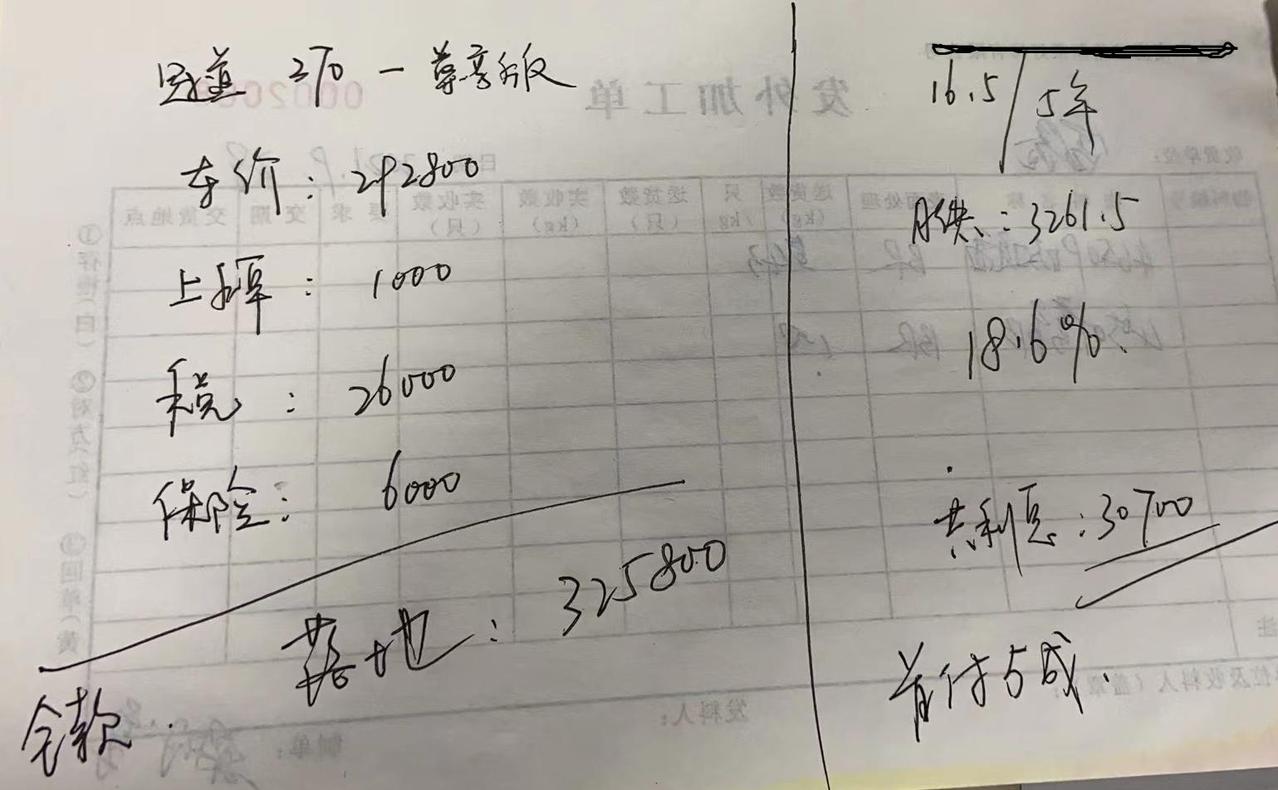 冠道 370 一尊享版
车价：292800
上牌：1000
税：26000
保险：6000
落地：325800
全款.
16.5/5年
月供：3261.5
18.6%
共利息：30700
首付5成.
发外加工单
收货单位：
送货数(kg)
只/kg
送货数(只)
实收数(kg)
实收数(只)
要求
交期
交货地点
发料人：
制单：
①存根(白) ②对方(红) ③回单(黄